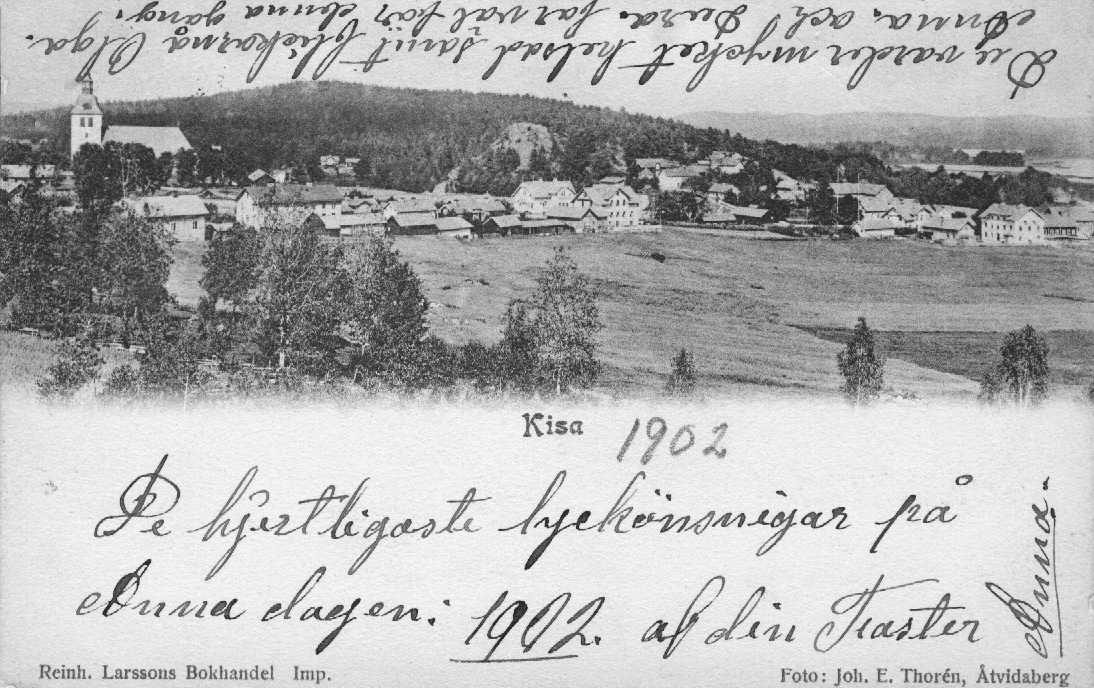 Du varder mycket helsad samt flickorna Olga.
Anna. och Dura. farväl för denna gång!
Kisa 1902
De hjertligaste lyckönsnigar på
Anna dagen: 1902. af din Faster
Anna.
Reinh. Larssons Bokhandel Imp.
Foto: Joh. E. Thorén, Åtvidaberg